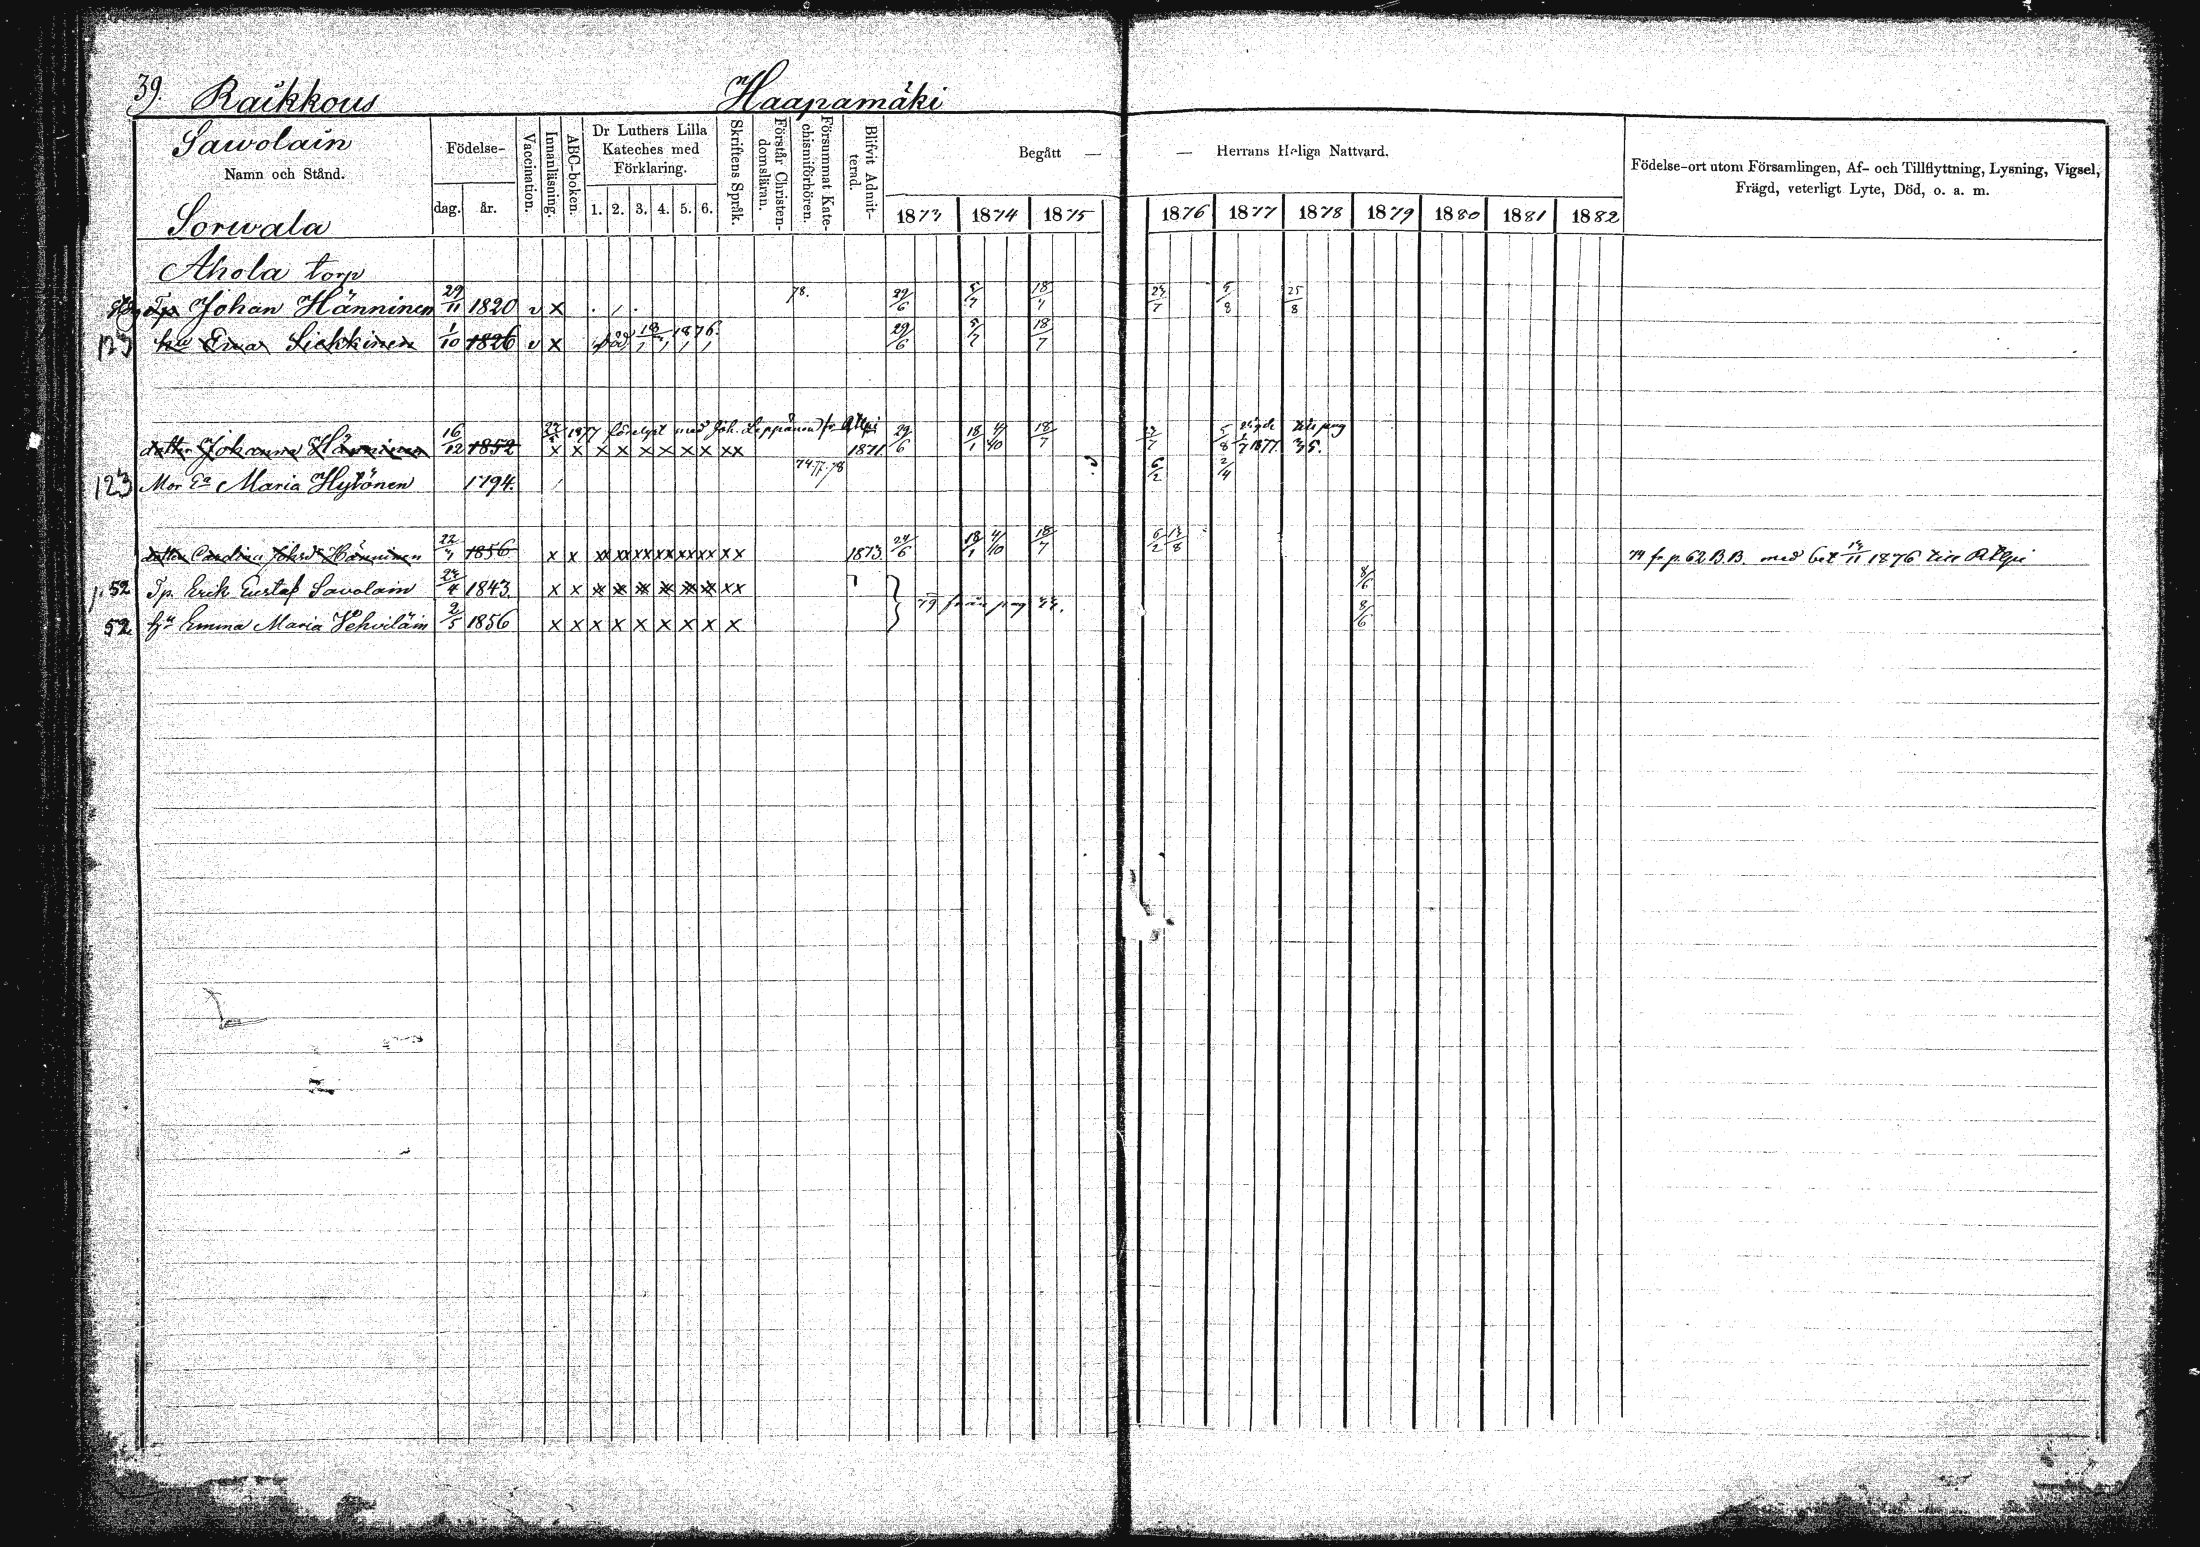 39. Raikkous Haapamäki
Sawolain
Namn och Stånd.
Sorwala
Födelse-
dag. år.
Vaccination.
Innanläsning.
ABC-boken.
Dr Luthers Lilla
Kateches med
Förklaring.
1. 2. 3. 4. 5. 6.
Skriftens Språk.
Förstår Christen-
domsläran.
Försummat Kate-
chismiförhören.
Blifvit Admit-
terad.
Begått — — Herrans Heliga Nattvard.
1873 1874 1875 1876 1877 1878 1879 1880 1881 1882
Födelse-ort utom Församlingen, Af- och Tillflyttning, Lysning, Vigsel,
Frägd, veterligt Lyte, Död, o. a. m.
Ahola torp
Tp. Johan Hänninen 29/11 1820 v x 78. 29/6 5/7 18/7 5/8 25/8
123 Ewa Siekkinen 1/10 1826 v x död 18/1 1876. 29/6 5/7 18/7
1877 med Joh. Leppänen fr
dotter Johanna Hänninen 16/12 1852 x x x x x x x x xx 1871 29/6 18/1 4/10 18/7 5/8 1877
123 Mor Maria Hytönen 1794. 74. 77. 78 6/2 2/4
dotter Carolina Hänninen 1856 x x xx xx xx xx xx xx xx 1873 18/1 4/10 18/7 6/2 74 fr p. 62 B.B. med bet 1876 till
p. 52 Tp. Erik Gustaf Savolain 1843. x x xx 8/6
79 från pag
52 hu Emma Maria Vehviläin 2/5 1856 x x x x x x x x x 8/6